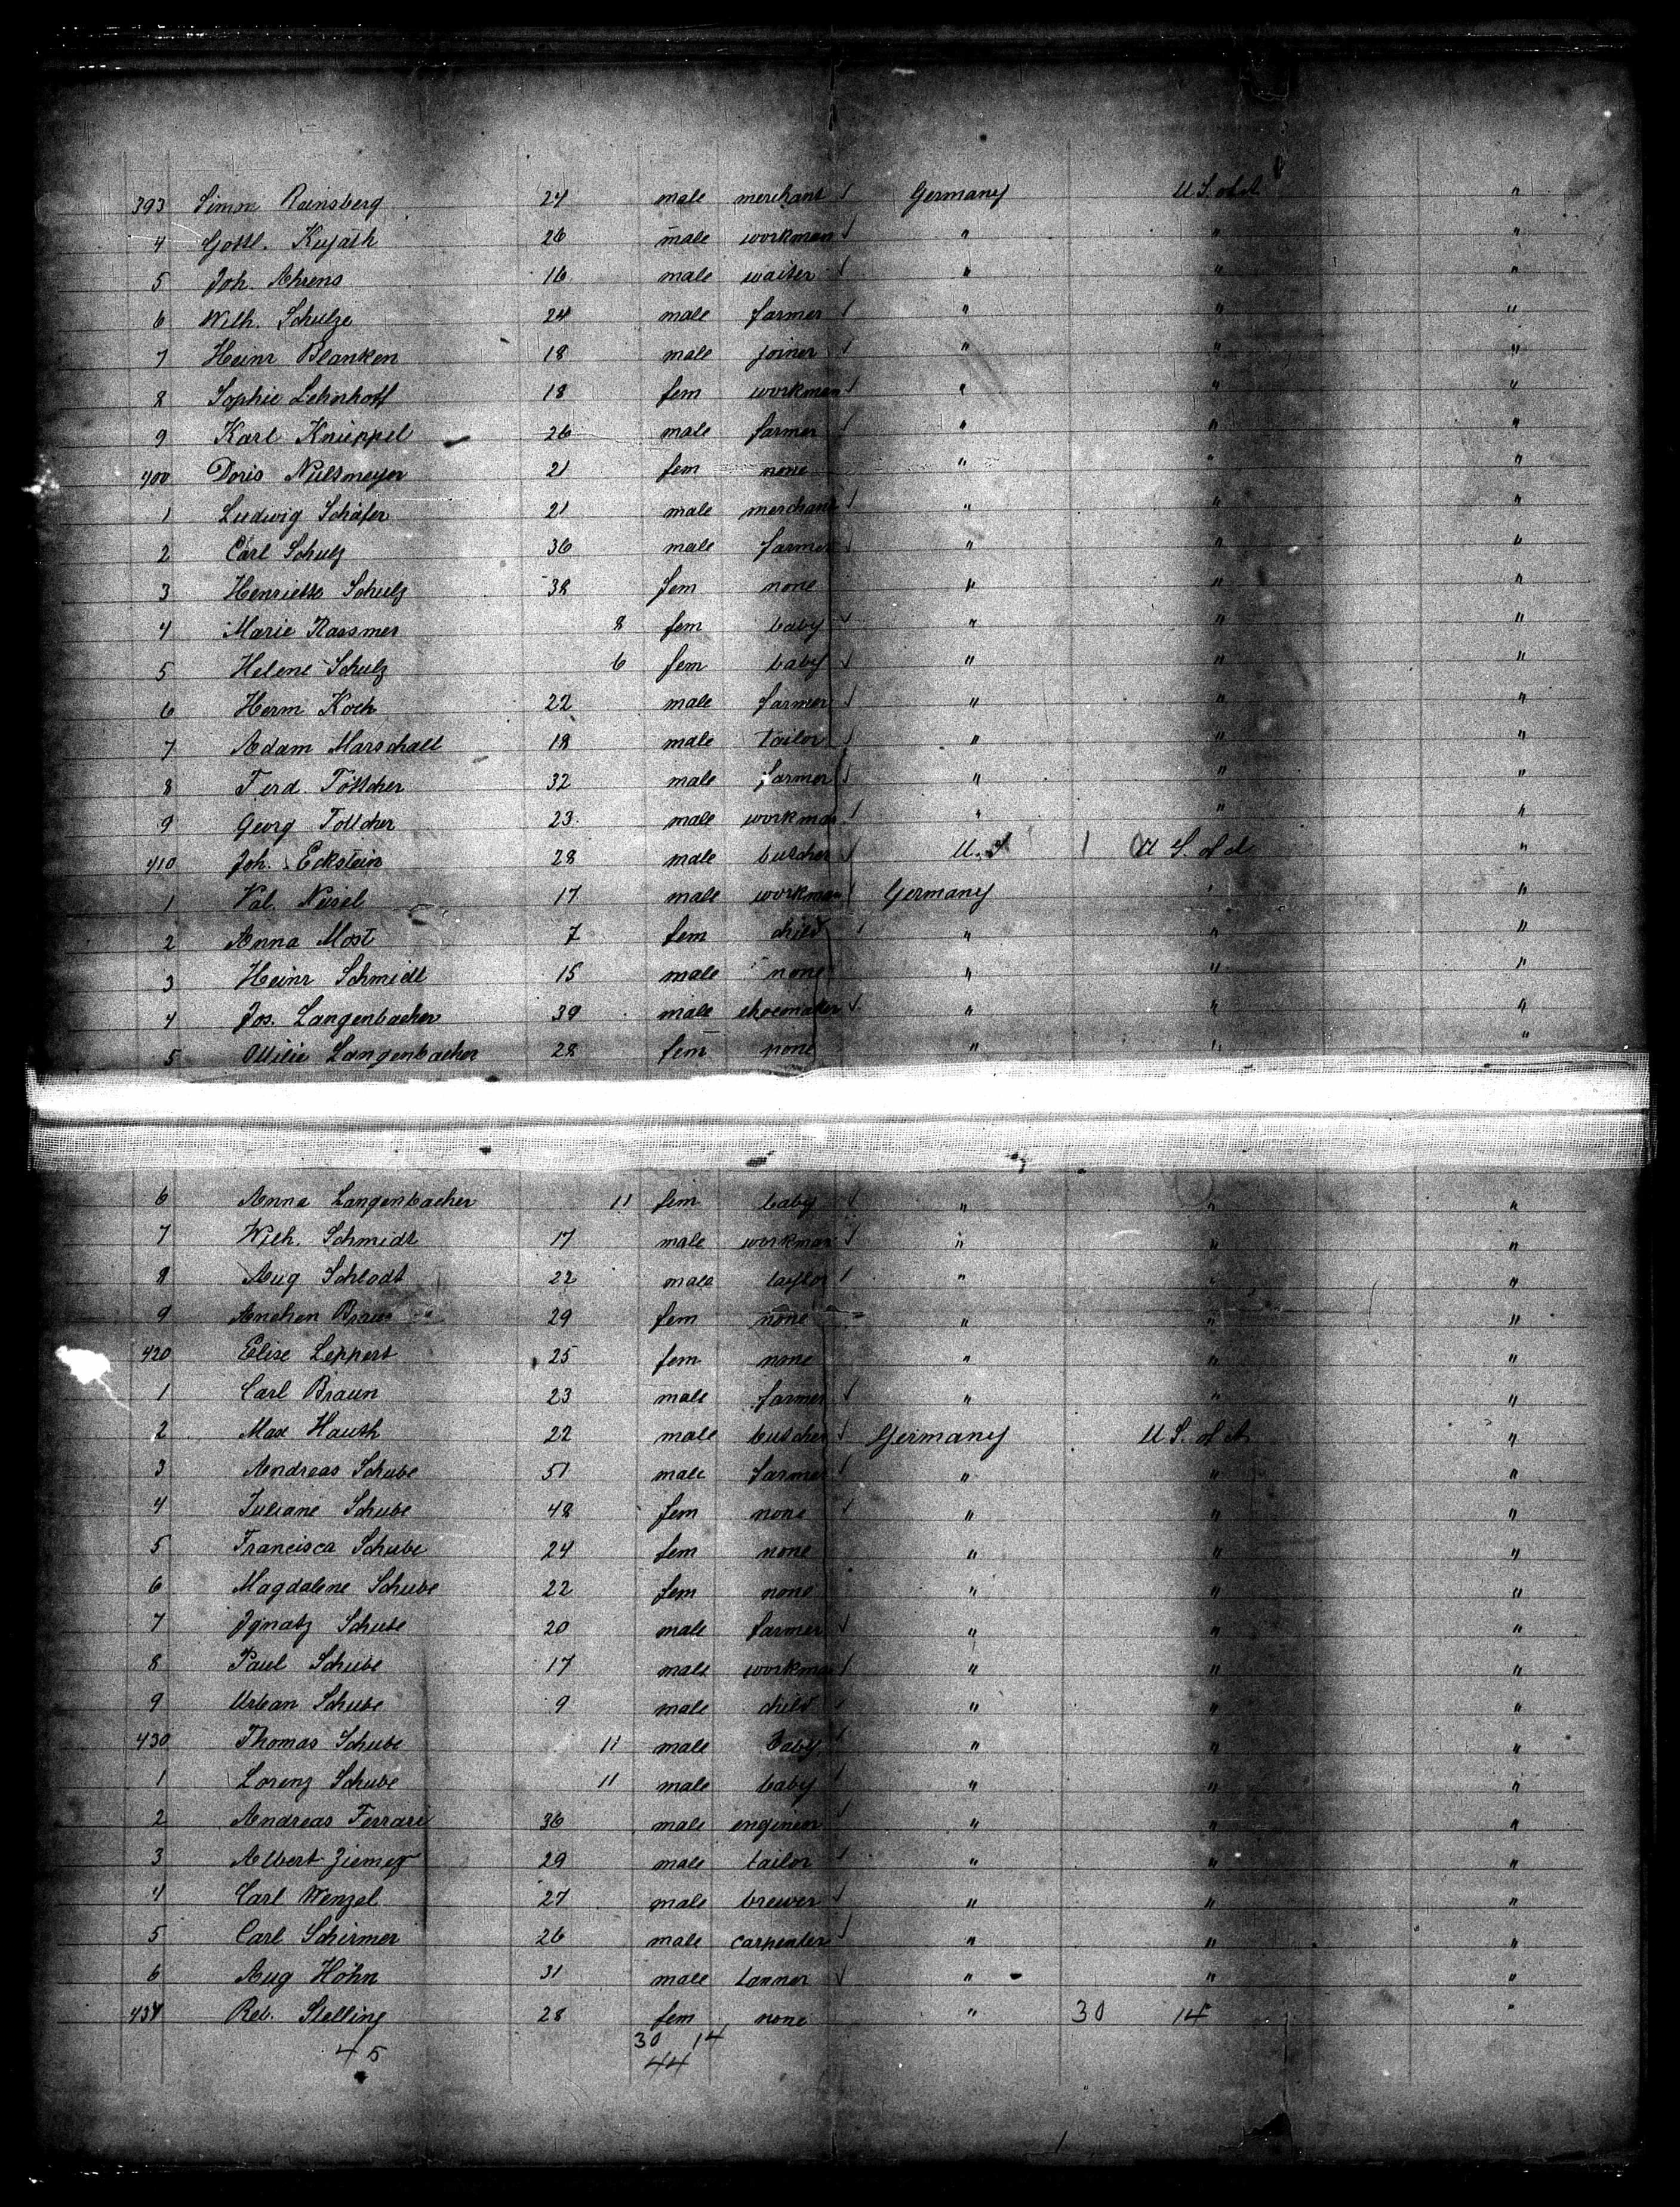 393 Simon Rainsberg 24 male merchant √ Germany U.S. of A "
4 Gottl. Kujath 26 male workman √ " " "
5 Joh. Ahrens 16 male waiter √ " " "
6 Wilh. Schulze 24 male farmer √ " " "
7 Heinr Blanken 18 male joiner √ " " "
8 Sophie Lehnhoff 18 fem workman √ " " "
9 Karl Knüppel 26 male farmer √ " " "
400 Doris 21 fem none " " "
1 Ludwig Schäfer 21 male merchant √ " " "
2 Carl Schulz 36 male farmer √ " " "
3 Henriette Schulz 38 fem none " " "
4 Marie Rassmer 8 fem baby √ " " "
5 Helene Schulz 6 fem baby √ " " "
6 Herm Koch 22 male farmer √ " " "
7 Adam Marschall 18 male tailor √ " " "
8 Ferd. Töttcher 32 male farmer √ " " "
9 Georg Tottcher 23 male workman √ " " "
410 Joh. Eckstein 28 male butcher √ U.S 1 U S. of A "
1 Val. 17 male workman √ Germany " "
2 Anna Most 7 fem child √ " " "
3 Heinr Schmidt 15 male none " " "
4 Jos. Langenbacher 39 male shoemaker √ " " "
5 Ottilie Langenbacher 28 fem none " " "
6 Anna Langenbacher 11 fem baby √ " " "
7 Wilh. Schmidt 17 male workman √ " " "
8 Aug Schlodt 22 male taylor √ " " "
9 Anchen Braun 29 fem none " " "
420 Elise Leppert 25 fem none " " "
1 Carl Braun 23 male farmer √ " " "
2 Max Hauth 22 male butcher √ Germany U S. of A "
3 Andreas Schube 51 male farmer √ " " "
4 Juliane Schube 48 fem none √ " " "
5 Francisca Schube 24 fem none " " "
6 Magdalene Schube 22 fem none " " "
7 Ignatz Schube 20 male farmer √ " " "
8 Paul Schube 17 male workman √ " " "
9 Urban Schube 9 male child √ " " "
430 Thomas Schube 11 male baby √ " " "
1 Lorenz Schube 11 male baby √ " " "
2 Andreas Ferrari 36 male engineer √ " " "
3 Albert Ziemer 29 male tailor √ " " "
4 Carl Wenzel 27 male brewer √ " " "
5 Carl Schirmer 26 male carpenter √ " " "
6 Aug Höhn 31 male tanner √ " " "
437 Reb. Stelling 28 fem none " 30 14 "
45 30 14
44